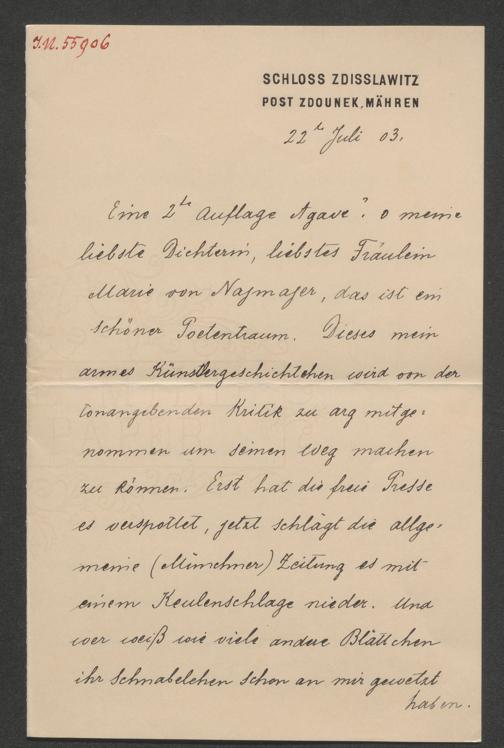 I.N. 55906
SCHLOSS ZDISSLAWITZ
POST ZDOUNEK, MÄHREN
22te Juli 03.
Eine 2te Auflage Agave? o meine
liebste Dichterin, liebstes Fräulein
Marie von Najmajer, das ist ein
schöner Poetentraum. Dieses mein
armes Künstlergeschichtchen wird von der
tonangebenden Kritik zu arg mitge-
nommen um seinen Weg machen
zu können. Erst hat die freie Presse
es verspottet, jetzt schlägt die allge-
meine (Münchner) Zeitung es mit
einem Keulenschlage nieder. Und
wer weiß wie viele andere Blättchen
ihr Schnabelchen schon an mir gewetzt
haben.